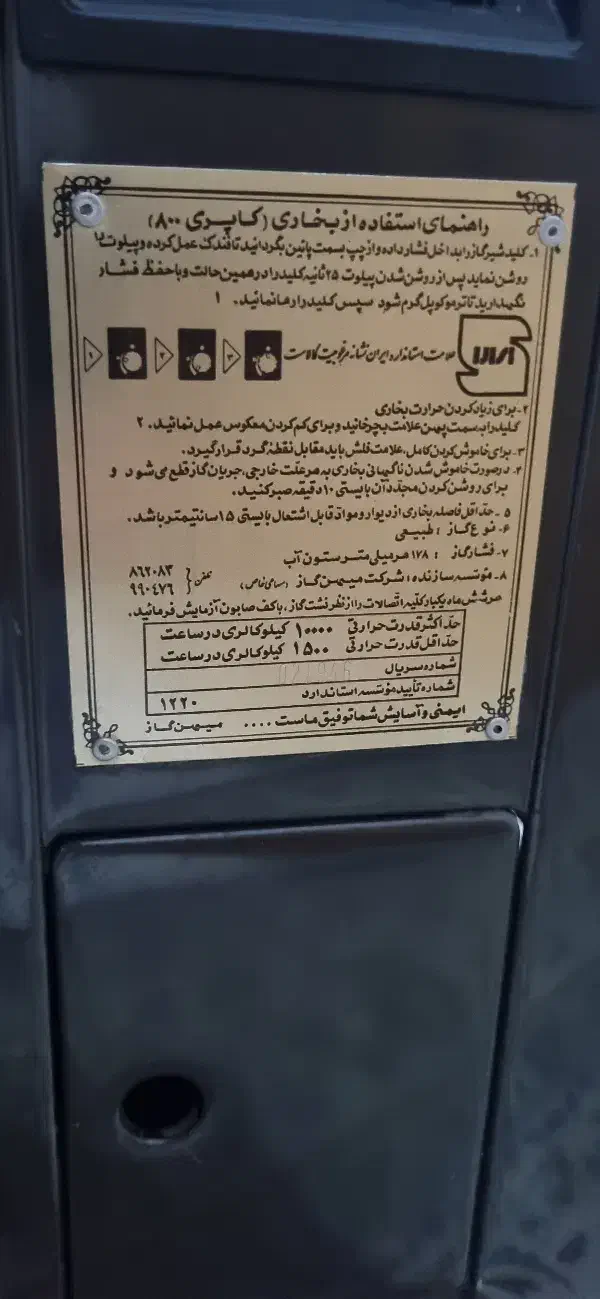 راهنمای استفاده از بخاری (کاپری ۸۰۰)
۱ـ کلید شیر گاز را بداخل فشار داده و از چپ بسمت پائین بگردانید تا فندک عمل کرده و پیلوت را
روشن نماید پس از روشن شدن پیلوت ۲۵ ثانیه کلید را در همین حالت و با حفظ فشار
نگهدارید تا ترموکوپل گرم شود سپس کلید را رها نمائید. ۱
علامت استاندارد ایران نشانه مرغوبیت کالاست
۳ ۲ ۱
۲ـ برای زیاد کردن حرارت بخاری
کلید را بسمت پهن علامت بچرخانید و برای کم کردن معکوس عمل نمائید. ۲
۳ـ برای خاموش کردن کامل، علامت فلش باید مقابل نقطه گرد قرار گیرد.
۴ـ در صورت خاموش شدن ناگهانی بخاری به هر علت خارجی، جریان گاز قطع می شود و
برای روشن کردن مجدد آن بایستی ۱۰ دقیقه صبر کنید.
۵ ـ حداقل فاصله بخاری از دیوار و مواد قابل اشتعال بایستی ۱۵ سانتیمتر باشد.
۶ـ نوع گاز : طبیعی
۷ـ فشار گاز : ۱۷۸ میلی متر ستون آب
۸ـ مؤسسه سازنده : شرکت میهن گاز (سهامی خاص) تلفن ۸۶۲۰۸۳
۹۹۰۴۷۶
هر شش ماه یکبار کلیه اتصالات را از نظر نشت گاز، با کف صابون آزمایش فرمائید.
حداکثر قدرت حرارتی ۱۰۰۰۰ کیلو کالری در ساعت
حداقل قدرت حرارتی ۱۵۰۰ کیلو کالری در ساعت
شماره سریال
شماره تأیید مؤسسه استاندارد ۱۲۲۰
ایمنی و آسایش شما توفیق ماست .... میهن گاز